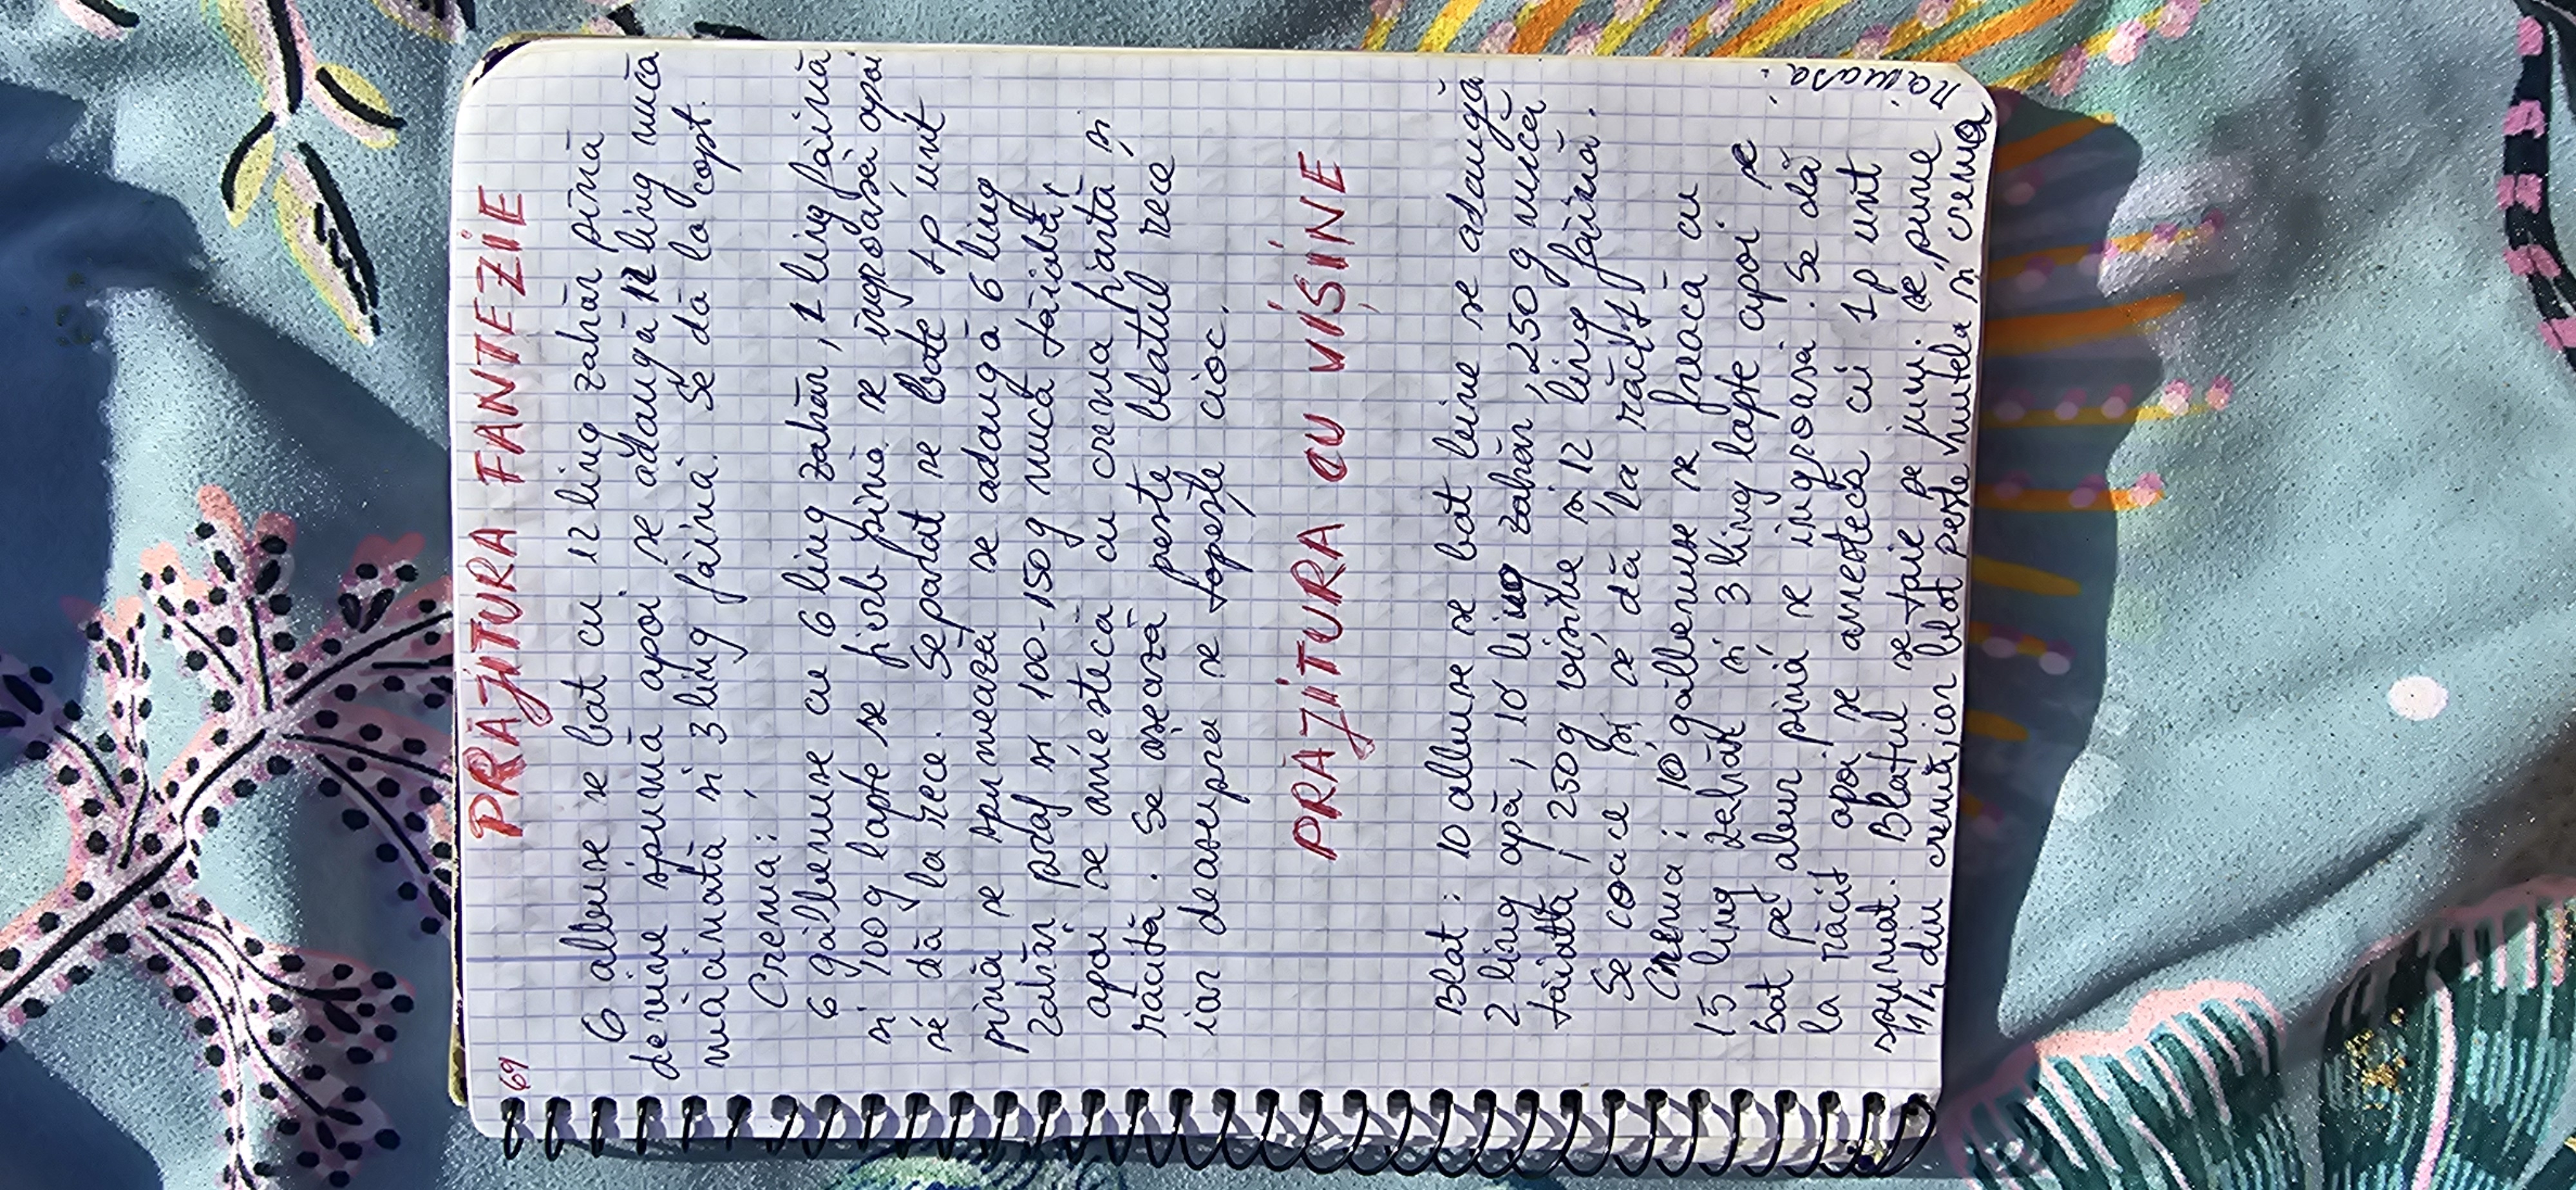 69
PRĂJITURA FANTEZIE
6 albușe se bat cu 12 ling zahăr pînă
devine spumă apoi se adaugă 12 ling nucă
măcinată si 3 ling făină. Se dă la copt.
Crema:
6 gălbenușe cu 6 ling zahăr, 1 ling făină
si 100g lapte se fierb pînă se îngroașă apoi
se dă la rece. Separat se bate 1p unt
pînă se spumează se adaugă 6 ling
zahăr praf si 100-150g nucă tăiată,
apoi se amestecă cu crema fiartă și
răcită. Se așează peste blatul rece
iar deasupra se topește cioc.
PRĂJITURA CU VIȘINE
Blat: 10 albușe se bat bine se adaugă
2 ling apă, 10 ling zahăr, 250g nucă
tăiată, 250g vișine și 12 ling făină.
Se coace și se dă la răcit.
Crema: 10 gălbenușe se freacă cu
15 ling zahăr și 3 ling lapte apoi se
bat pe abur pînă se îngroașă. Se dă
la răcit apoi se amestecă cu 1p unt
spumat. Blatul se taie pe jum. se pune
1/2 din cremă, iar blat peste nutela si crema
rămasă.